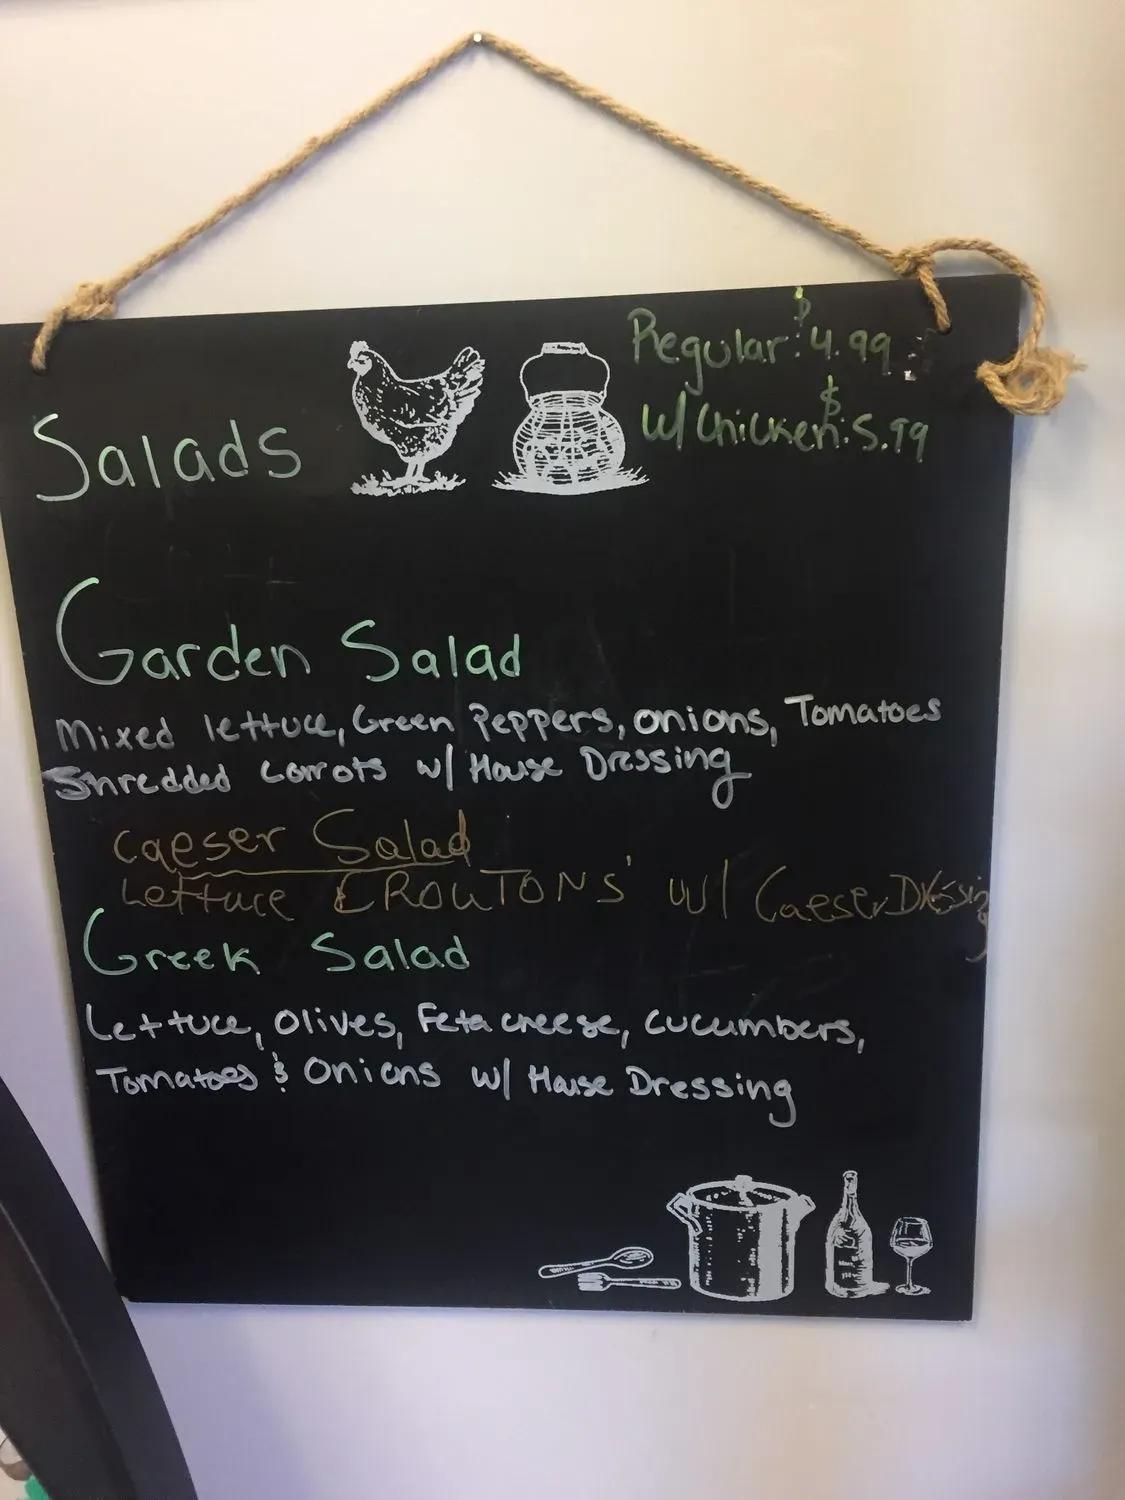 Salads
Regular: $4.99
W/ Chicken: $5.99
Garden Salad
Mixed lettuce, Green Peppers, onions, Tomatoes
Shredded Carrots w/ House Dressing
Caeser Salad
Lettuce CROUTONS w/ Caeser Dressing
Greek Salad
Lettuce, Olives, Feta cheese, cucumbers,
Tomatoes & Onions w/ House Dressing